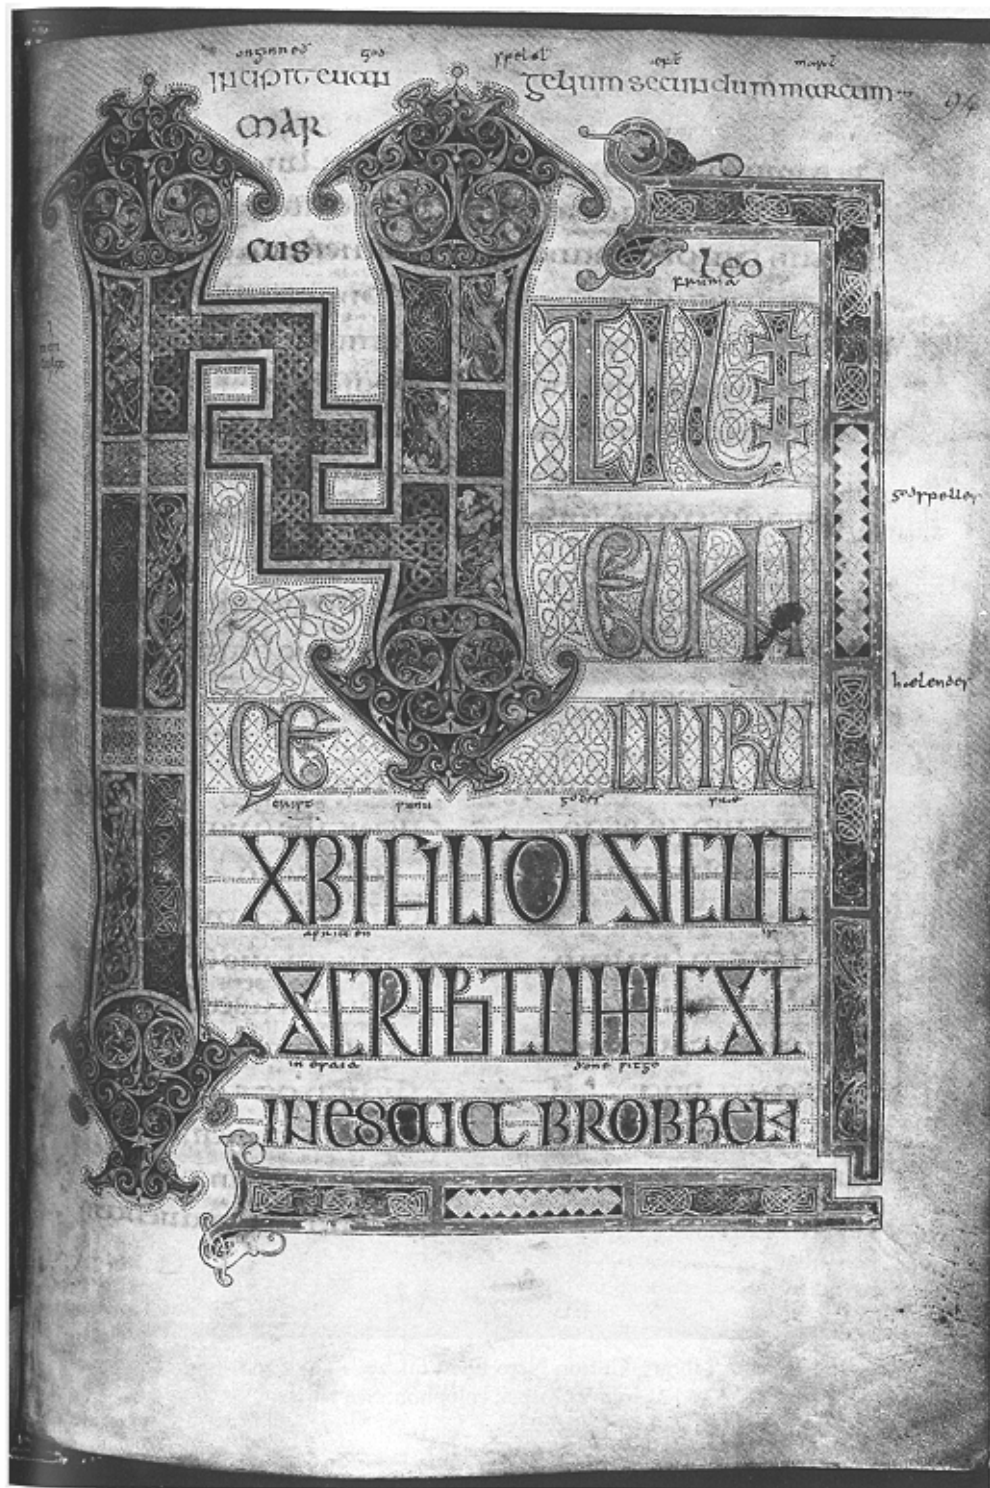 onginneð god spel æft marc
incipit euangelium secundum marcum
94
MAR
CUS
leo
fruma
INITIUM
godspelles
EUAN
hælendes
GE LII IHU
crist sunu godes suæ
XPI FILI DI SICUT
awritten is
SCRIBTUM EST
in esaia ðone witgo
IN ESAIA PROPHETA